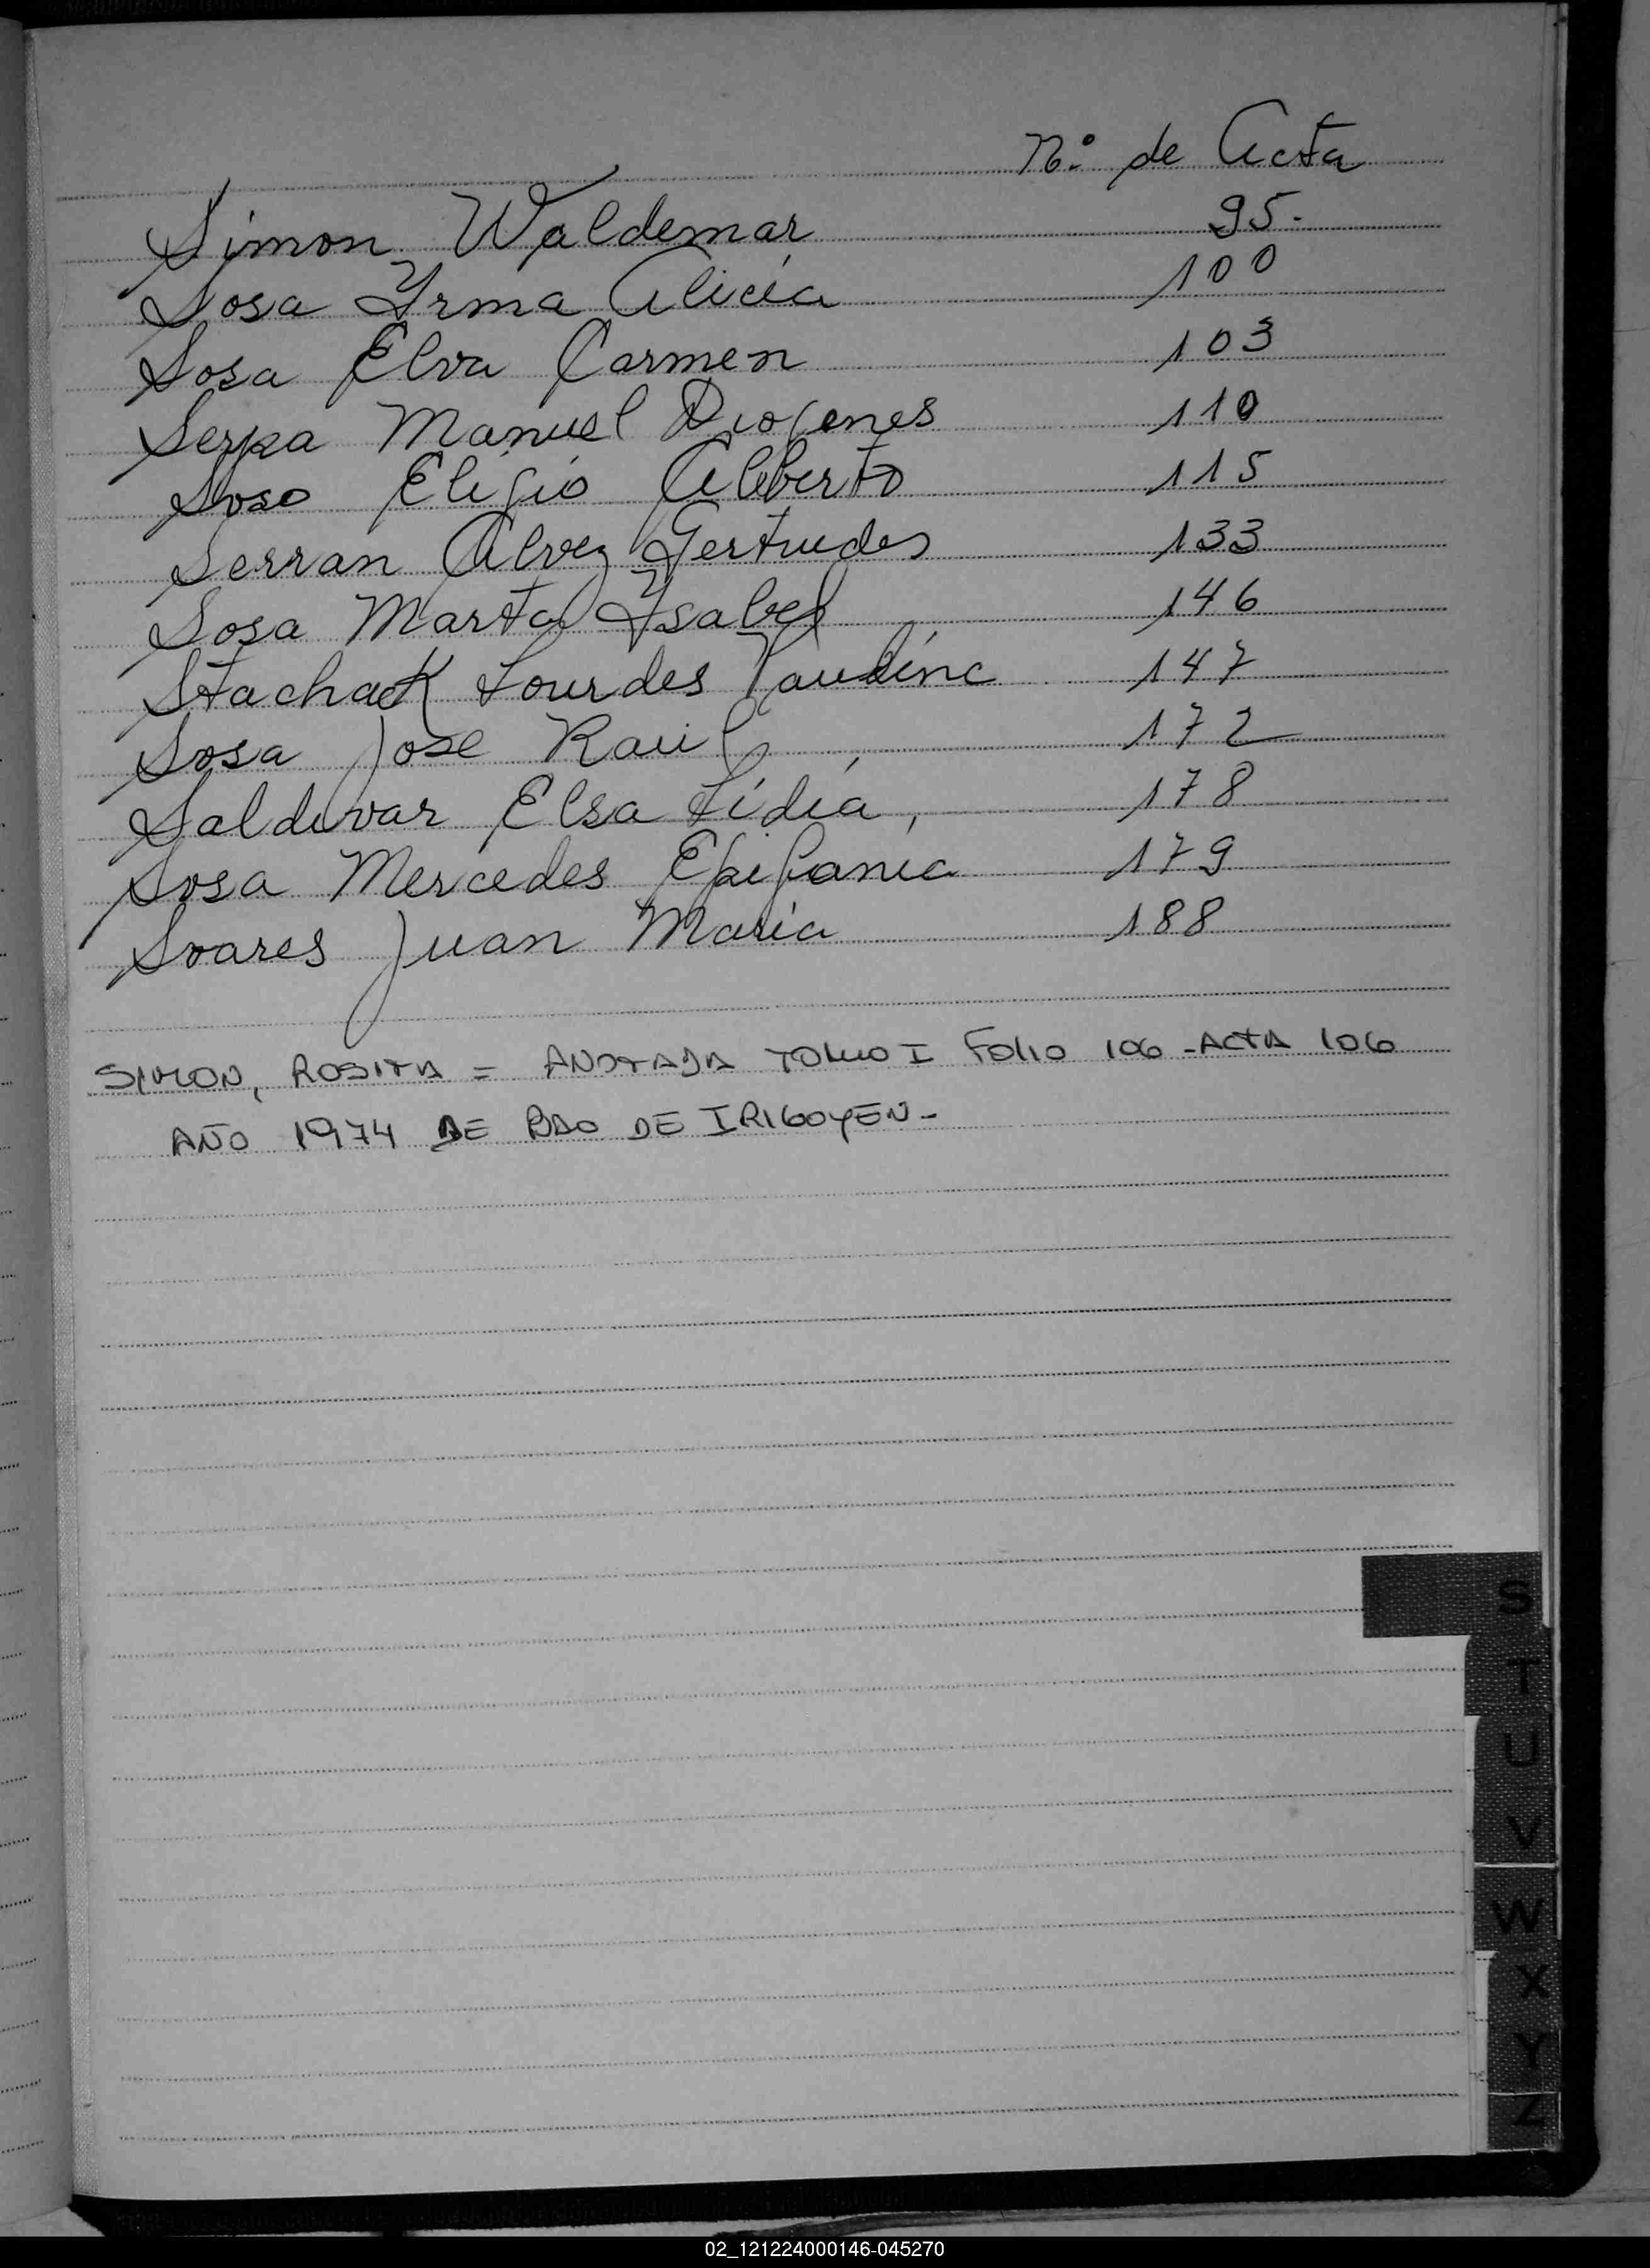 Nº de Acta
Simon Waldemar 95.
Sosa Yrma Alicia 100
Sosa Elva Carmen 103
Serpa Manuel Diogenes 110
Soso Eligio Alberto 115
Serran Alvez Gertrudes 133
Sosa Marta Ysabel 146
Stachack Lourdes Paulina 147
Sosa Jose Raúl, 172
Saldivar Elsa Lidia, 178
Sosa Mercedes Epifania 179
Soares Juan Maria 188
SIMON, ROSITA = ANOTADA TOMO I FOLIO 106 - ACTA 106
AÑO 1974 DE BDO DE IRIGOYEN -
S
T
U
V
W
X
Y
Z
02_121224000146-045270